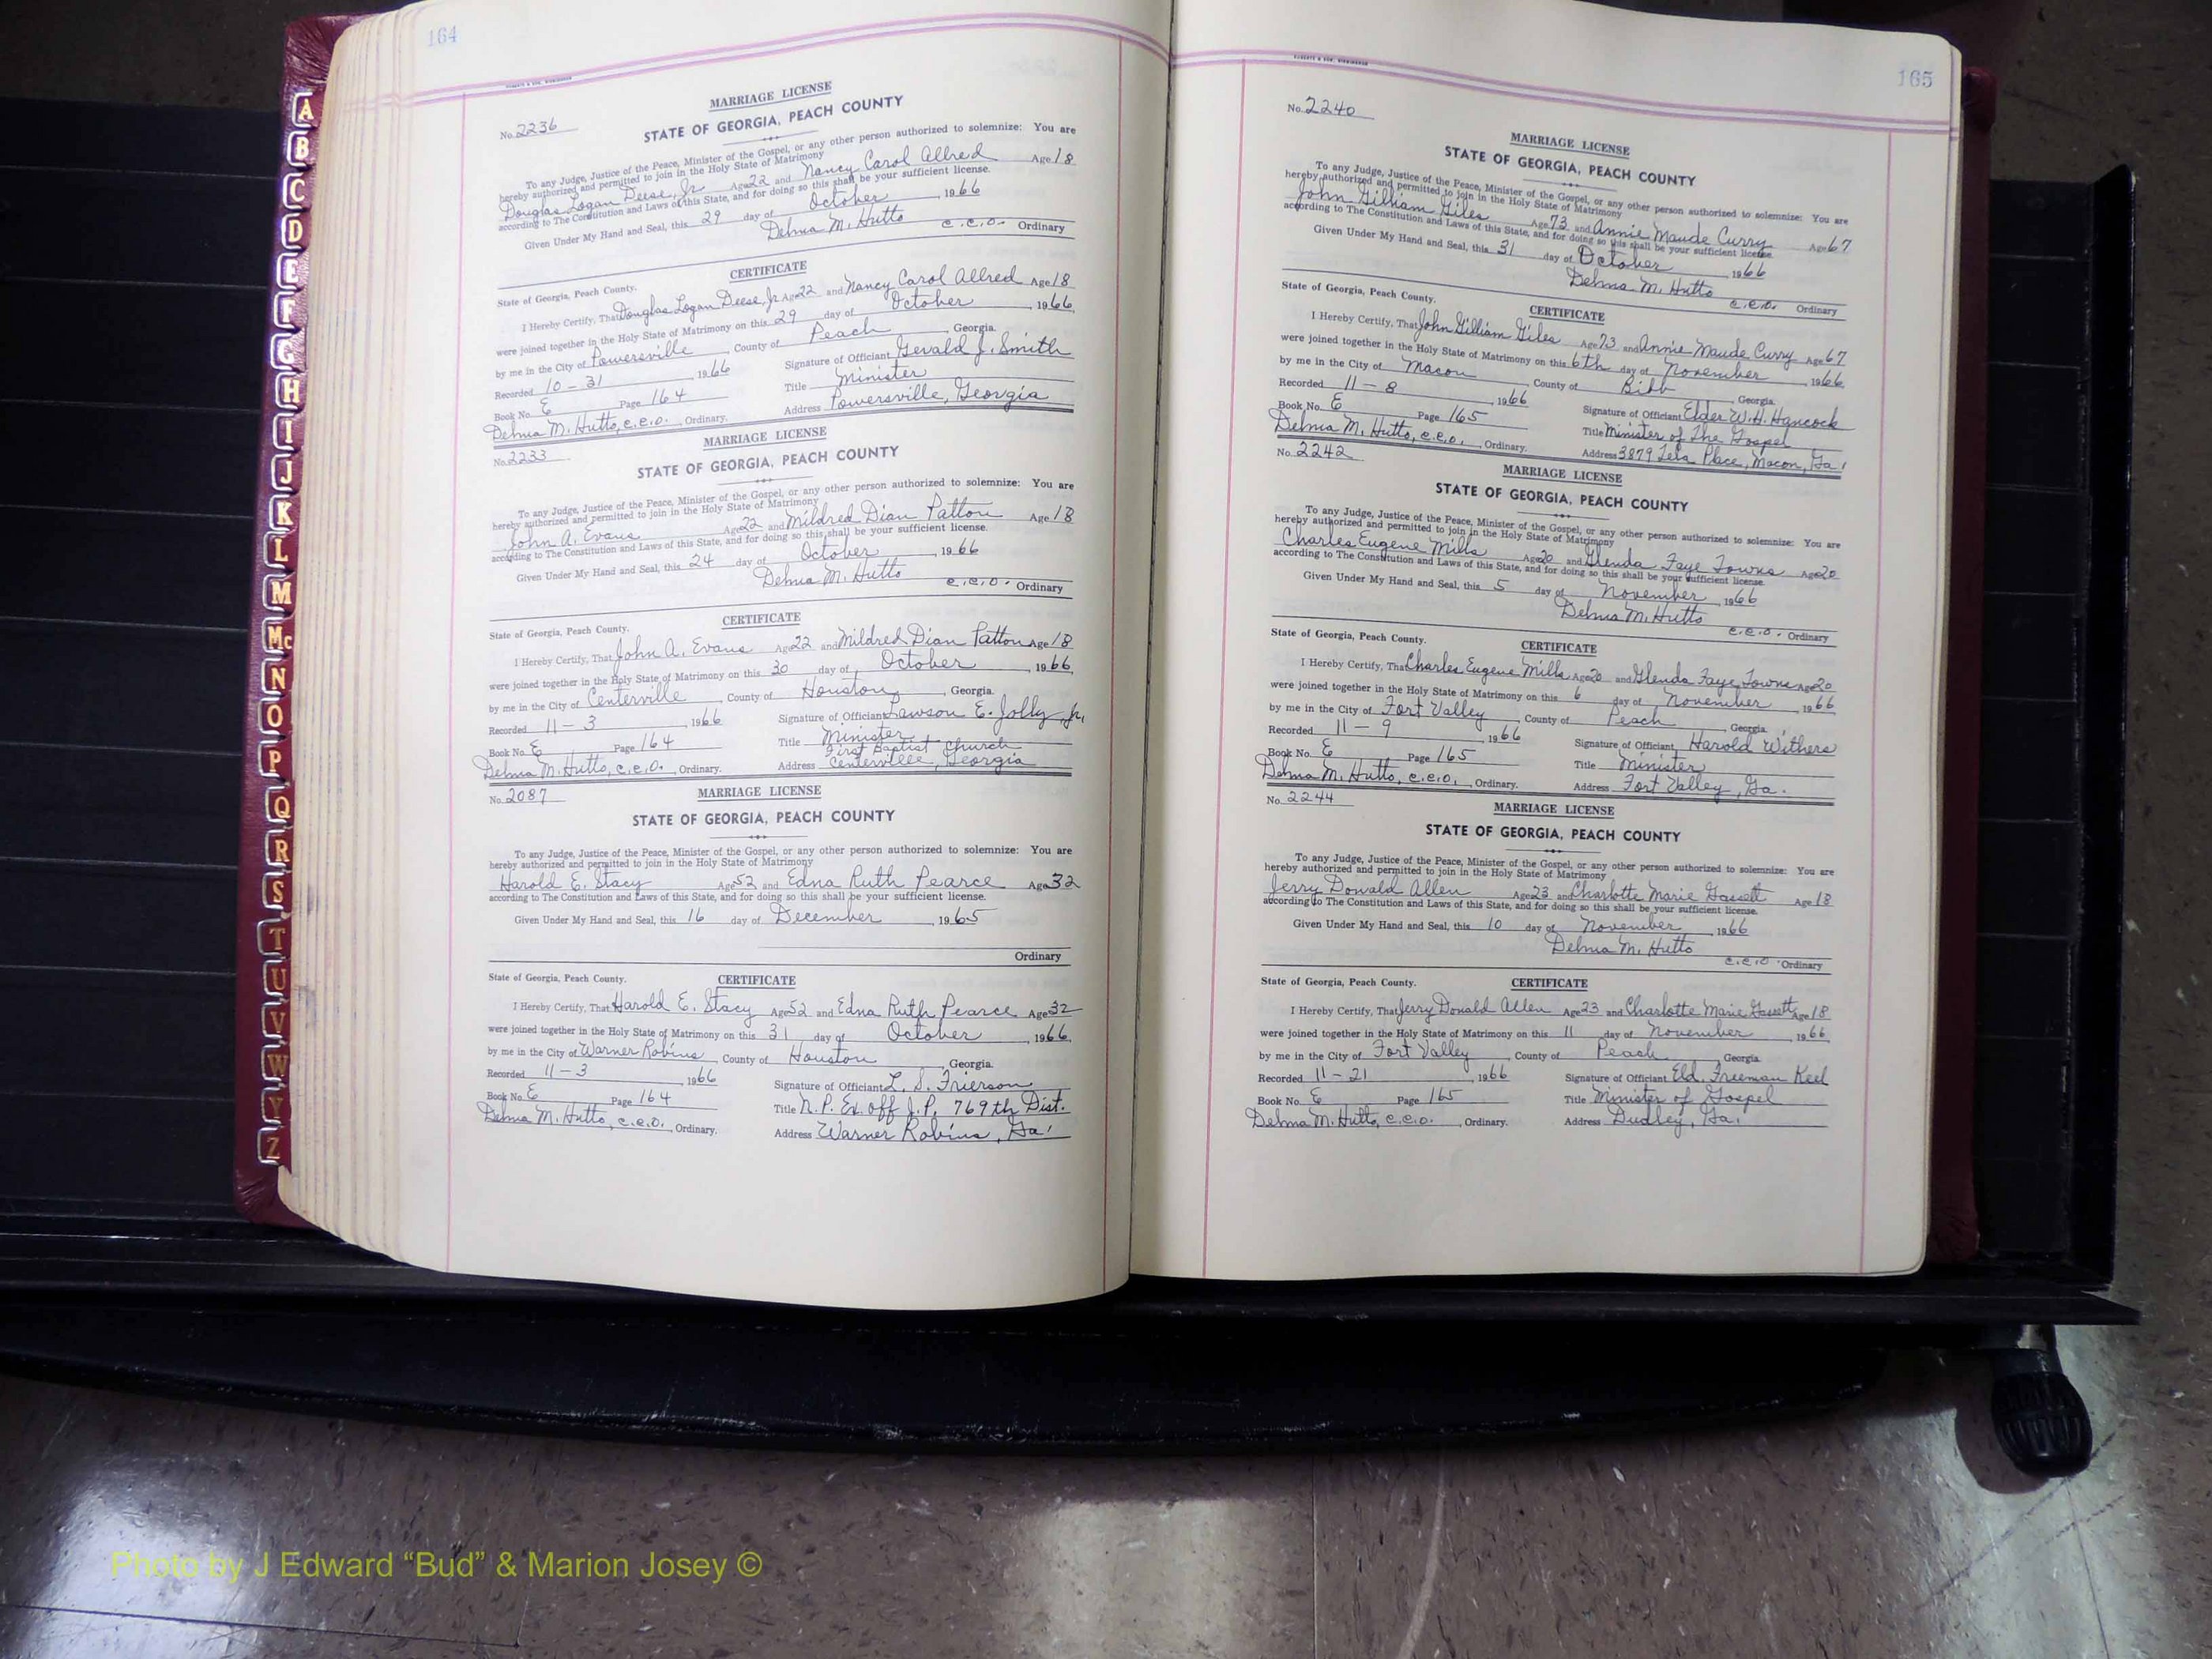 164
ROBERTS & SON, BIRMINGHAM
MARRIAGE LICENSE
No. 2236
STATE OF GEORGIA, PEACH COUNTY
To any Judge, Justice of the Peace, Minister of the Gospel, or any other person authorized to solemnize: You are
hereby authorized and permitted to join in the Holy State of Matrimony
Douglas Logan Deese, Jr Age 22 and Nancy Carol Allred Age 18
according to The Constitution and Laws of this State, and for doing so this shall be your sufficient license.
Given Under My Hand and Seal, this 29 day of October, 1966
Delma M. Hutto c.c.o. Ordinary
CERTIFICATE
State of Georgia, Peach County.
I Hereby Certify, That Douglas Logan Deese, Jr Age 22 and Nancy Carol Allred Age 18
were joined together in the Holy State of Matrimony on this 29 day of October 1966,
by me in the City of Powersville, County of Peach, Georgia.
Recorded 10-31, 1966
Signature of Officiant Gerald J. Smith
Book No. E Page 164
Title Minister
Delma M. Hutto, c.c.o., Ordinary.
Address Powersville, Georgia
MARRIAGE LICENSE
No. 2233
STATE OF GEORGIA, PEACH COUNTY
To any Judge, Justice of the Peace, Minister of the Gospel, or any other person authorized to solemnize: You are
hereby authorized and permitted to join in the Holy State of Matrimony
John A. Evans Age 22 and Mildred Dian Patton Age 18
according to The Constitution and Laws of this State, and for doing so this shall be your sufficient license.
Given Under My Hand and Seal, this 24 day of October, 1966
Delma M. Hutto c.c.o. Ordinary
CERTIFICATE
State of Georgia, Peach County.
I Hereby Certify, That John A. Evans Age 22 and Mildred Dian Patton Age 18
were joined together in the Holy State of Matrimony on this 30 day of October, 1966,
by me in the City of Centerville, County of Houston, Georgia.
Recorded 11-3, 1966
Signature of Officiant Lawson E. Jolly, Jr.
Book No. E Page 164
Title Minister
First Baptist Church
Delma M. Hutto, c.c.o., Ordinary.
Address Centerville, Georgia
No. 2087
MARRIAGE LICENSE
STATE OF GEORGIA, PEACH COUNTY
To any Judge, Justice of the Peace, Minister of the Gospel, or any other person authorized to solemnize: You are
hereby authorized and permitted to join in the Holy State of Matrimony
Harold E. Stacy Age 52 and Edna Ruth Pearce Age 32
according to The Constitution and Laws of this State, and for doing so this shall be your sufficient license.
Given Under My Hand and Seal, this 16 day of December, 1965
Ordinary
State of Georgia, Peach County.
CERTIFICATE
I Hereby Certify, That Harold E. Stacy Age 52 and Edna Ruth Pearce Age 32
were joined together in the Holy State of Matrimony on this 31 day of October, 1966,
by me in the City of Warner Robins, County of Houston, Georgia.
Recorded 11-3, 1966
Signature of Officiant L. S. Frierson
Book No. E Page 164
Title N.P. Ex. off J.P. 769th Dist.
Delma M. Hutto, c.c.o., Ordinary.
Address Warner Robins, Ga.
165
ROBERTS & SON, BIRMINGHAM
No. 2240
MARRIAGE LICENSE
STATE OF GEORGIA, PEACH COUNTY
To any Judge, Justice of the Peace, Minister of the Gospel, or any other person authorized to solemnize: You are
hereby authorized and permitted to join in the Holy State of Matrimony
John Gilliam Giles Age 73 and Annie Maude Curry Age 67
according to The Constitution and Laws of this State, and for doing so this shall be your sufficient license.
Given Under My Hand and Seal, this 31 day of October, 1966
Delma M. Hutto c.c.o. Ordinary
State of Georgia, Peach County.
CERTIFICATE
I Hereby Certify, That John Gilliam Giles Age 73 and Annie Maude Curry Age 67
were joined together in the Holy State of Matrimony on this 6th day of November, 1966
by me in the City of Macon, County of Bibb, Georgia.
Recorded 11-8, 1966
Signature of Officiant Elder W. H. Hancock
Book No. E Page 165
Title Minister of The Gospel
Delma M. Hutto, c.c.o., Ordinary.
Address 3879 Place, Macon, Ga.
No. 2242
MARRIAGE LICENSE
STATE OF GEORGIA, PEACH COUNTY
To any Judge, Justice of the Peace, Minister of the Gospel, or any other person authorized to solemnize: You are
hereby authorized and permitted to join in the Holy State of Matrimony
Charles Eugene Mills Age 20 and Glenda Faye Towns Age 20
according to The Constitution and Laws of this State, and for doing so this shall be your sufficient license.
Given Under My Hand and Seal, this 5 day of November, 1966
Delma M. Hutto
c.c.o. Ordinary
State of Georgia, Peach County.
CERTIFICATE
I Hereby Certify, That Charles Eugene Mills Age 20 and Glenda Faye Towns Age 20
were joined together in the Holy State of Matrimony on this 6 day of November, 1966
by me in the City of Fort Valley, County of Peach, Georgia
Recorded 11-9, 1966
Signature of Officiant Harold Withers
Book No. E Page 165
Title Minister
Delma M. Hutto, c.c.o., Ordinary.
Address Fort Valley, Ga.
No. 2244
MARRIAGE LICENSE
STATE OF GEORGIA, PEACH COUNTY
To any Judge, Justice of the Peace, Minister of the Gospel, or any other person authorized to solemnize: You are
hereby authorized and permitted to join in the Holy State of Matrimony
Jerry Donald Allen Age 23 and Charlotte Marie Gassett Age 18
according to The Constitution and Laws of this State, and for doing so this shall be your sufficient license.
Given Under My Hand and Seal, this 10 day of November, 1966
Delma M. Hutto
c.c.o. Ordinary
State of Georgia, Peach County.
CERTIFICATE
I Hereby Certify, That Jerry Donald Allen Age 23 and Charlotte Marie Gassett Age 18
were joined together in the Holy State of Matrimony on this 11 day of November, 1966,
by me in the City of Fort Valley, County of Peach, Georgia
Recorded 11-21, 1966
Signature of Officiant Eld. Freeman Keel
Book No. E Page 165
Title Minister of Gospel
Delma M. Hutto, c.c.o., Ordinary.
Address Dudley, Ga.
A
B
C
D
E
F
G
H
I
J
K
L
M
Mc
N
O
P
Q
R
S
T
U
V
W
Y
Z
Photo by J Edward “Bud” & Marion Josey ©